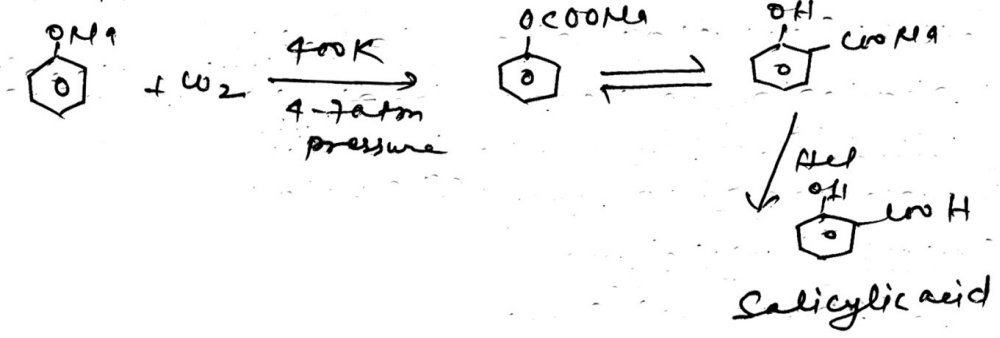 ONa + CO2 400K 4-7atm pressure OCOONa OH COONa
HCl
OH COOH
Salicylic acid